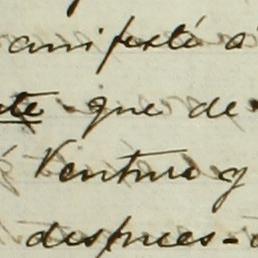 anifesté a
te que de
Ventura y
despues -